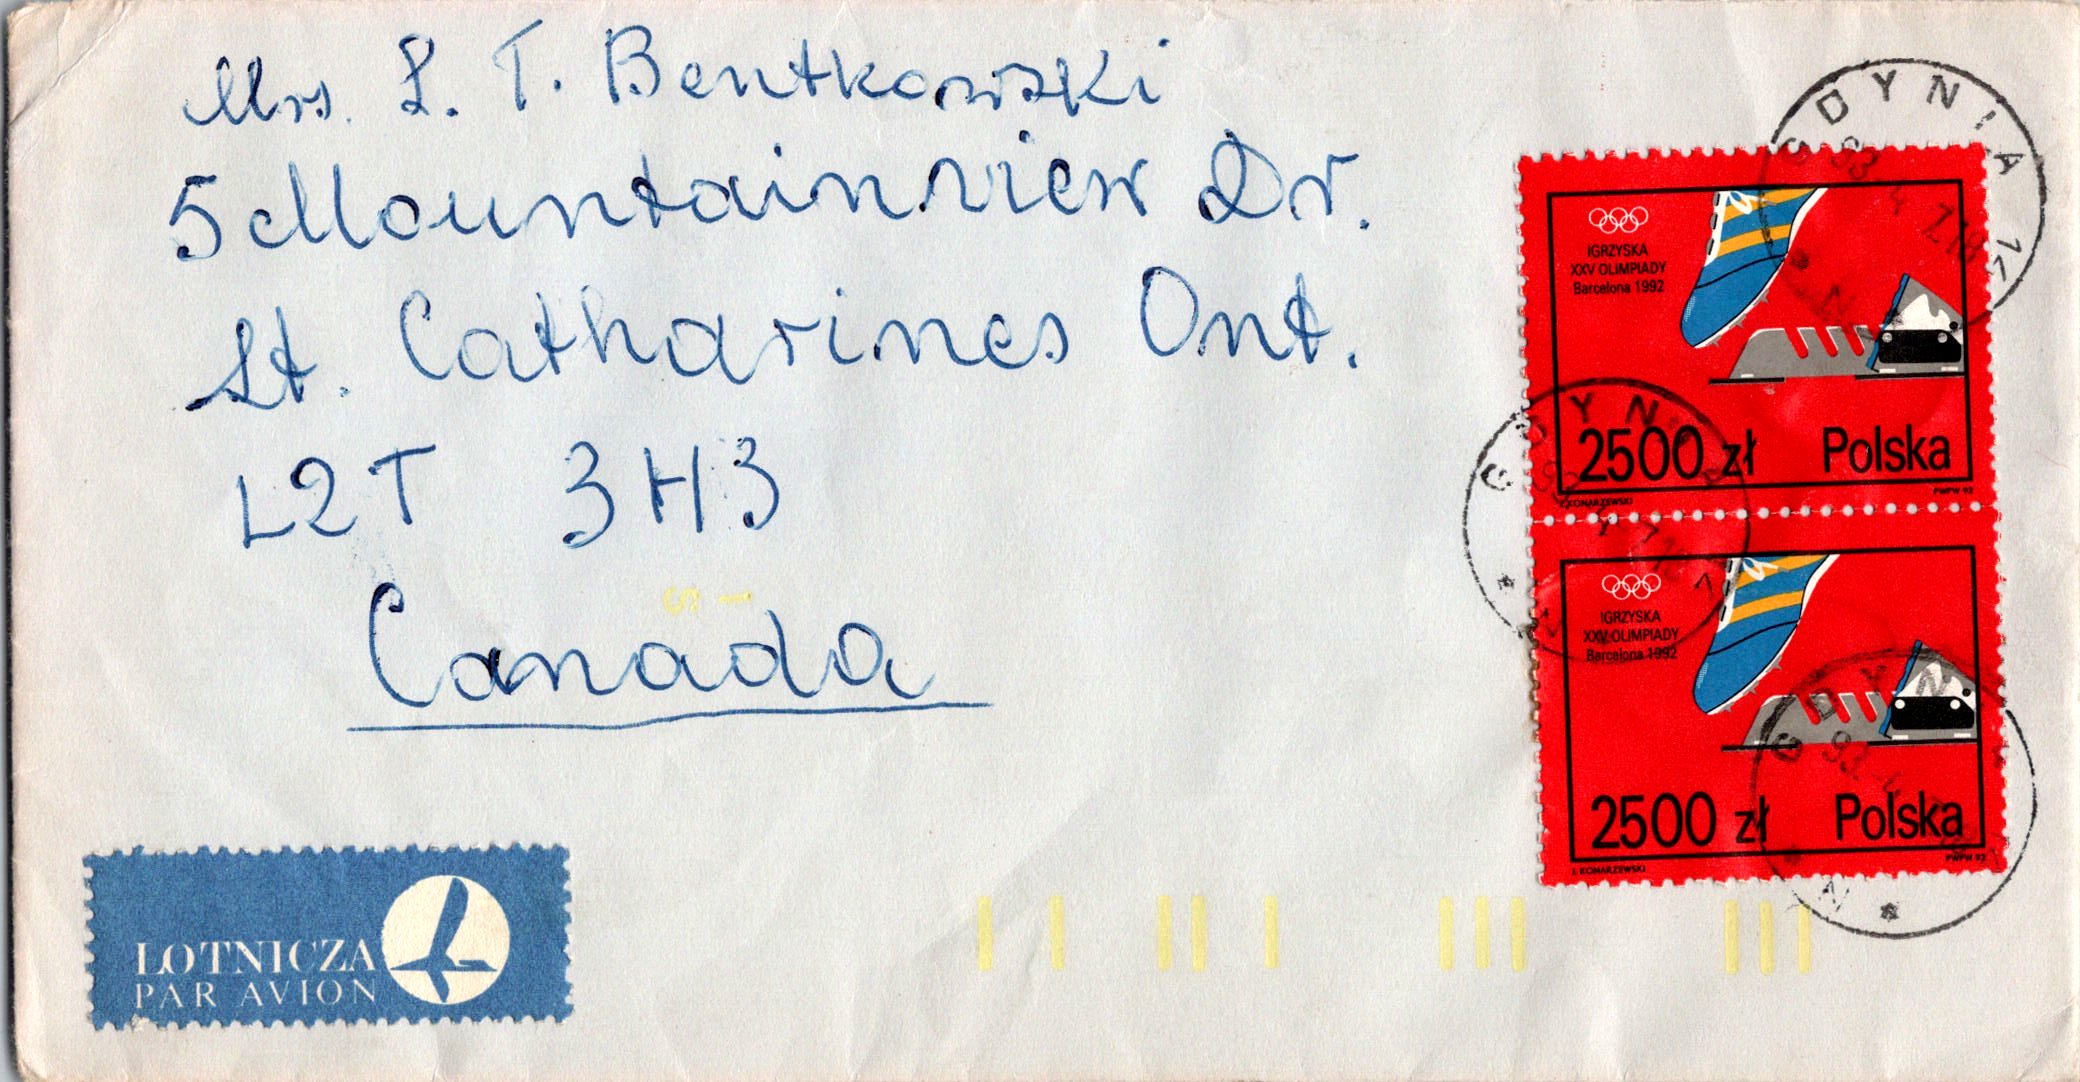 Mrs. L. T. Bentkowski
5 Mountainview Dr.
St. Catharines Ont.
L2T 3H3
Canada
GDYNIA 14
93
IGRZYSKA
XXV OLIMPIADY
Barcelona 1992
2500 zł Polska
J. KONARZEWSKI PWPW 92
GDYNIA
IGRZYSKA
XXV OLIMPIADY
Barcelona 1992
GDYN
93
2500 zł Polska
J. KONARZEWSKI PWPW 92
LOTNICZA
PAR AVION